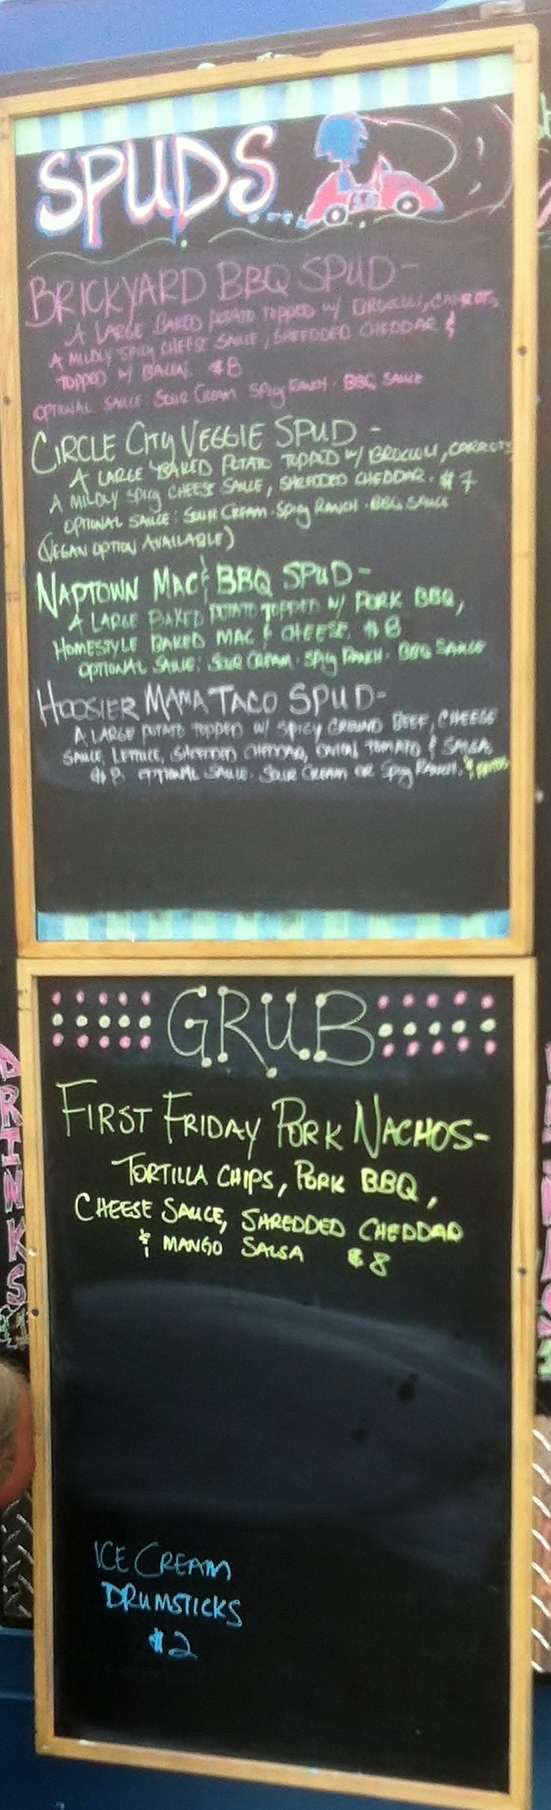 SPUDS
BRICKYARD BBQ SPUD-
A LARGE BAKED POTATO TOPPED W/ BROCCOLI, CARROTS,
A MILDLY SPICY CHEESE SAUCE, SHREDDED CHEDDAR &
TOPPED W/ BACON. $8
OPTIONAL SAUCE: SOUR CREAM SPICY RANCH · BBQ SAUCE
CIRCLE CITY VEGGIE SPUD -
A LARGE BAKED POTATO TOPPED W/ BROCCOLI, CARROTS
A MILDLY SPICY CHEESE SAUCE, SHREDDED CHEDDAR. $7
OPTIONAL SAUCE: SOUR CREAM · SPICY RANCH · BBQ SAUCE
(VEGAN OPTION AVAILABLE)
NAPTOWN MAC & BBQ SPUD-
A LARGE BAKED POTATO TOPPED W/ PORK BBQ,
HOMESTYLE BAKED MAC & CHEESE. $8
OPTIONAL SAUCE: SOUR CREAM · SPICY RANCH · BBQ SAUCE
HOOSIER MAMA TACO SPUD-
A LARGE POTATO TOPPED W/ SPICY GROUND BEEF, CHEESE
SAUCE, LETTUCE, SHREDDED CHEDDAR, ONION, TOMATO & SALSA
$8 OPTIONAL SAUCE: SOUR CREAM OR SPICY RANCH. & FRITOS
GRUB
FIRST FRIDAY PORK NACHOS-
TORTILLA CHIPS, PORK BBQ,
CHEESE SAUCE, SHREDDED CHEDDAR
& MANGO SALSA $8
ICE CREAM
DRUMSTICKS
$2
DRINKS